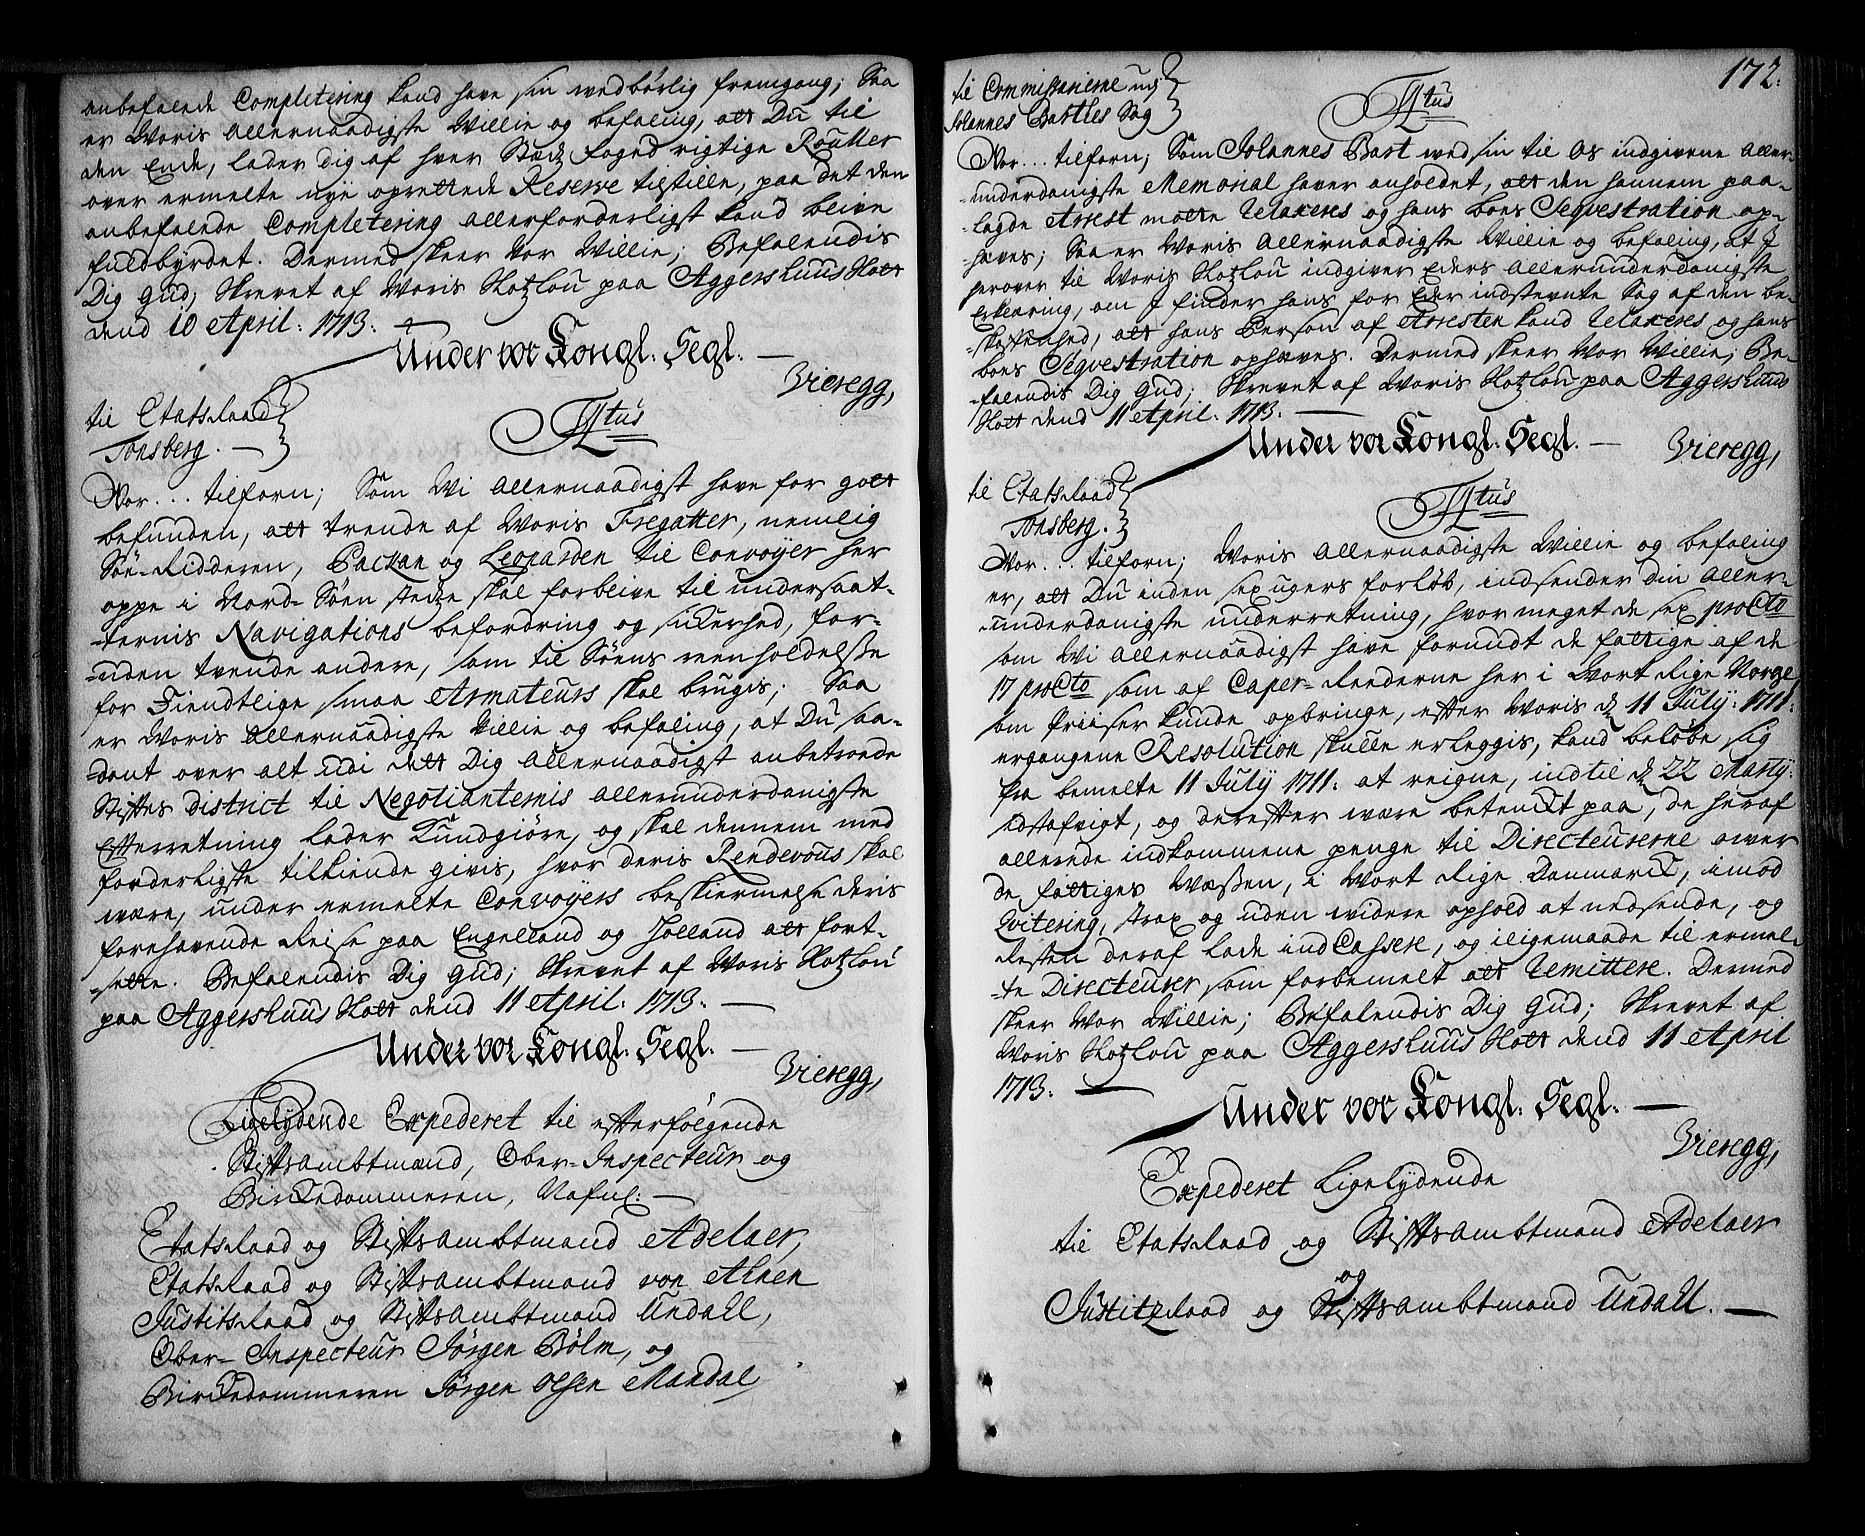 anbefalede Completering kand have sin wedbørlig fremgang; Saa
er Woris allernaadigste Willie og befaling, att Du til
den Ende, lader dig af hver Stædz foged rigtige Rouller
over ermelte nye oprettede Reserve tilstille, paa det den
anbefalede Completering allerforderligst kand blive
fuldbyrdet. Dermed skeer Vor Willie; Befalendis
Dig Gud; Skrevet af Woris Slotzlou paa Aggershuus Slott
dend 10 April: 1713.
Under vor Kongl: Segl.
Vieregg,
til Etatsraad
Tonsberg.
Ftus
Vor... tilforn; Som Wi allernaadigst have for gott
befunden, att trende af Woris Fregatter, nemlig
Søe-Ridderen, Packan og Leoparden til Convoyer her
oppe i Nord-Søen stedze skal forblive til undersaat-
ternis Navigations befordring og sickerhed, for-
uden tvende andere, som til Søens reenholdelse
for Fiendtlige smaa Armateurs skal brugis; Saa
er Woris allernaadigste Willie og befaling, at Du saa-
dant over alt udi dett Dig allernaadigst anbetroede
Stiffts District til Negotianternis allerunderdanigste
Efterretning lader Kundgiøre, og skal dennem med
forderligste tilkiende givis, hvor deris Rendevous skal
være, under ermelte Convoyers beskiermelse deris
forehavende Reise paa Engelland og Holland att fort-
sette. Befalendis Dig Gud; Skrevet af Woris Slotzlou
paa Aggershuus Slott dend 11 April: 1713.
Under vor Kongl: Segl.
Vieregg,
Ligelydende Expederet til efterfølgende
Stiftsambtmænd, Ober-Inspecteur og
Birckedommeren, Nafnl:
Etatsraad og Stiftsambtmand Adelaer,
Etatsraad og Stiftsambtmand von Ahnen
Justitsraad og Stiftsambtmand Undall,
Ober-Inspecteur Jørgen Bølm, og
Birckedommeren Jørgen Olsen Mandal
172.
til Commissarierne udj
Johannes Barthes Sag
Ftus
Vor... tilforn; Som Johannes Bart med sin til Os indgivene aller-
underdanigste Memorial haver anholdet, att den hannem paa-
lagde Arrest motte Relaxeres og hans boes Seqvestration op-
hæves; Saa er Woris allernaadigste Willie og befaling, at I
herover til Woris Slotzlou indgiver Eders allerunderdanigste
Erklæring, om I finder hans for Eder indstevnte Sag af den be-
skaffenhed, att hans Person af Arresten kand Relaxeres og hans
boes Seqvestration ophæves. Dermed skeer Vor Willie; Be-
falendis Dig Gud; Skrevet af Woris Slotzlou paa Aggershuus
Slott dend 11 April: 1713.
Under vor Kongl: Segl.
Vieregg,
til Etatsraad
Tonsberg.
Ftus
Vor... tilforn; Woris allernaadigste Willie og befaling
er, att Du inden sex ugers forløb, indsender din aller-
underdanigste underretning, hvor meget de sex proCto
som Wi allernaadigst have forundt de fattige af de
17 proCto som af Caper-Rederne her i Wort Rige Norge,
om Priiser kunde opbringe, efter Woris d. 11 July: 1711.
ergangene Resolution skulle erleggis, kand beløbe sig
fra bemelte 11 July 1711. at reigne, indtil d. 22 Martij
idstafvigt, og derefter være betenckt paa, de heraf
allerede indkommene penge til Directeurerne over
de fattiges Wæsen, i Wort Rige Danmarck, imod
Qvitering, strax og uden widere ophold at nedsende, og
Resten deraf lade indCassere, og iligemaade til ermel-
te Directeurer, som forbemelt att Remittere. Dermed
skeer Vor Willie; Befalendis Dig Gud; Skrevet af
Woris Slotzlou paa Aggershuus Slott dend 11 April
1713.
Under vor Kongl: Segl.
Vieregg,
Expederet Ligelydende
til Etatsraad og Stiftsambtmand Adelaer
og
Justitzraad og Stiftsambtmand Undall.